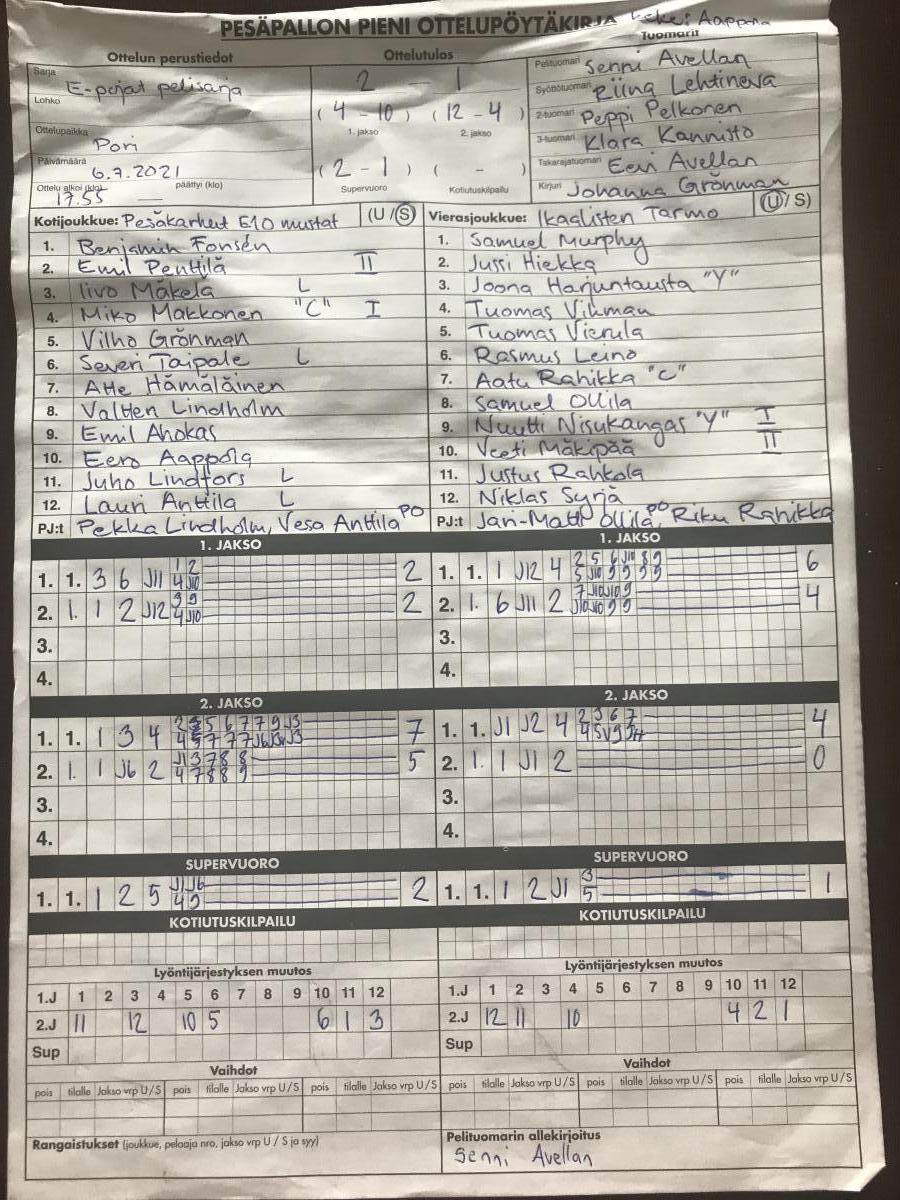 PESÄPALLON PIENI OTTELUPÖYTÄKIRJA
Ottelun perustiedot
Sarja E-pojat pelisarja
Lohko
Ottelupaikka Pori
Päivämäärä 6.7.2021
Ottelu alkoi (klo) 17.55 päättyi (klo) —
Ottelutulos
2 - 1
( 4 - 10 ) ( 12 - 4 )
1. jakso 2. jakso
( 2 - 1 ) ( - )
Supervuoro Kotiutuskilpailu
Tuomarit
Pelituomari Senni Avellan
Syöttötuomari Riina Lehtineva
2-tuomari Peppi Pelkonen
3-tuomari Klara Kannisto
Takarajatuomari Eevi Avellan
Kirjuri Johanna Grönman
Kotijoukkue: Pesäkarhut E10 mustat (U/S)
1. Benjamin Fonsén
2. Emil Penttilä II
3. Iivo Mäkelä L
4. Miko Makkonen "C" I
5. Vilho Grönman
6. Severi Taipale L
7. Atte Hämäläinen
8. Valtteri Lindholm
9. Emil Ahokas
10. Eero Aappola
11. Juho Lindfors L
12. Lauri Anttila L
PJ:t Pekka Lindholm, Vesa Anttila PO
Vierasjoukkue: Ikaalisten Tarmo (U/S)
1. Samuel Murphy
2. Jussi Hiekka
3. Joona Harjuntausta "Y"
4. Tuomas Vihman
5. Tuomas Vierula
6. Rasmus Leino
7. Aatu Rahikka "C"
8. Samuel Ollila
9. Nuutti Nisukangas "Y" I
10. Veeti Mäkipää II
11. Justus Rahkola
12. Niklas Syrjä
PJ:t Jari-Matti Ollila PO, Riku Rahikka
1. JAKSO
1. 1. 3 6 J11 1 2 2
4 J10
2. 1. 1 2 J12 3 9 2
4 J10
3.
4.
1. JAKSO
1. 1. 1 J12 4 2 5 6 J10 8 9 6
5 J10 9 9 9 9
2. 1. 6 J11 2 7 J10 J10 9 4
J10 J10 9 9
3.
4.
2. JAKSO
1. 1. 1 3 4 7
2. 1. 1 J6 2 J1 3 7 8 8 5
4 7 8 8 9
3.
4.
2. JAKSO
1. 1. J1 J2 4 2 3 6 7 4
2. 1. 1 J1 2 0
3.
4.
SUPERVUORO
1. 1. 1 2 5 J1 J6 2
4 9
SUPERVUORO
1. 1. 1 2 J1 3 1
5
KOTIUTUSKILPAILU
KOTIUTUSKILPAILU
Lyöntijärjestyksen muutos
1.J 1 2 3 4 5 6 7 8 9 10 11 12
2.J 11 12 10 5 6 1 3
Sup
Lyöntijärjestyksen muutos
1.J 1 2 3 4 5 6 7 8 9 10 11 12
2.J 12 11 10 4 2 1
Sup
Vaihdot
pois tilalle Jakso vrp U/S pois tilalle Jakso vrp U/S pois tilalle Jakso vrp U/S
Vaihdot
pois tilalle Jakso vrp U/S pois tilalle Jakso vrp U/S pois tilalle Jakso vrp U/S
Rangaistukset (joukkue, pelaaja nro, jakso vrp U / S ja syy)
Pelituomarin allekirjoitus
Senni Avellan